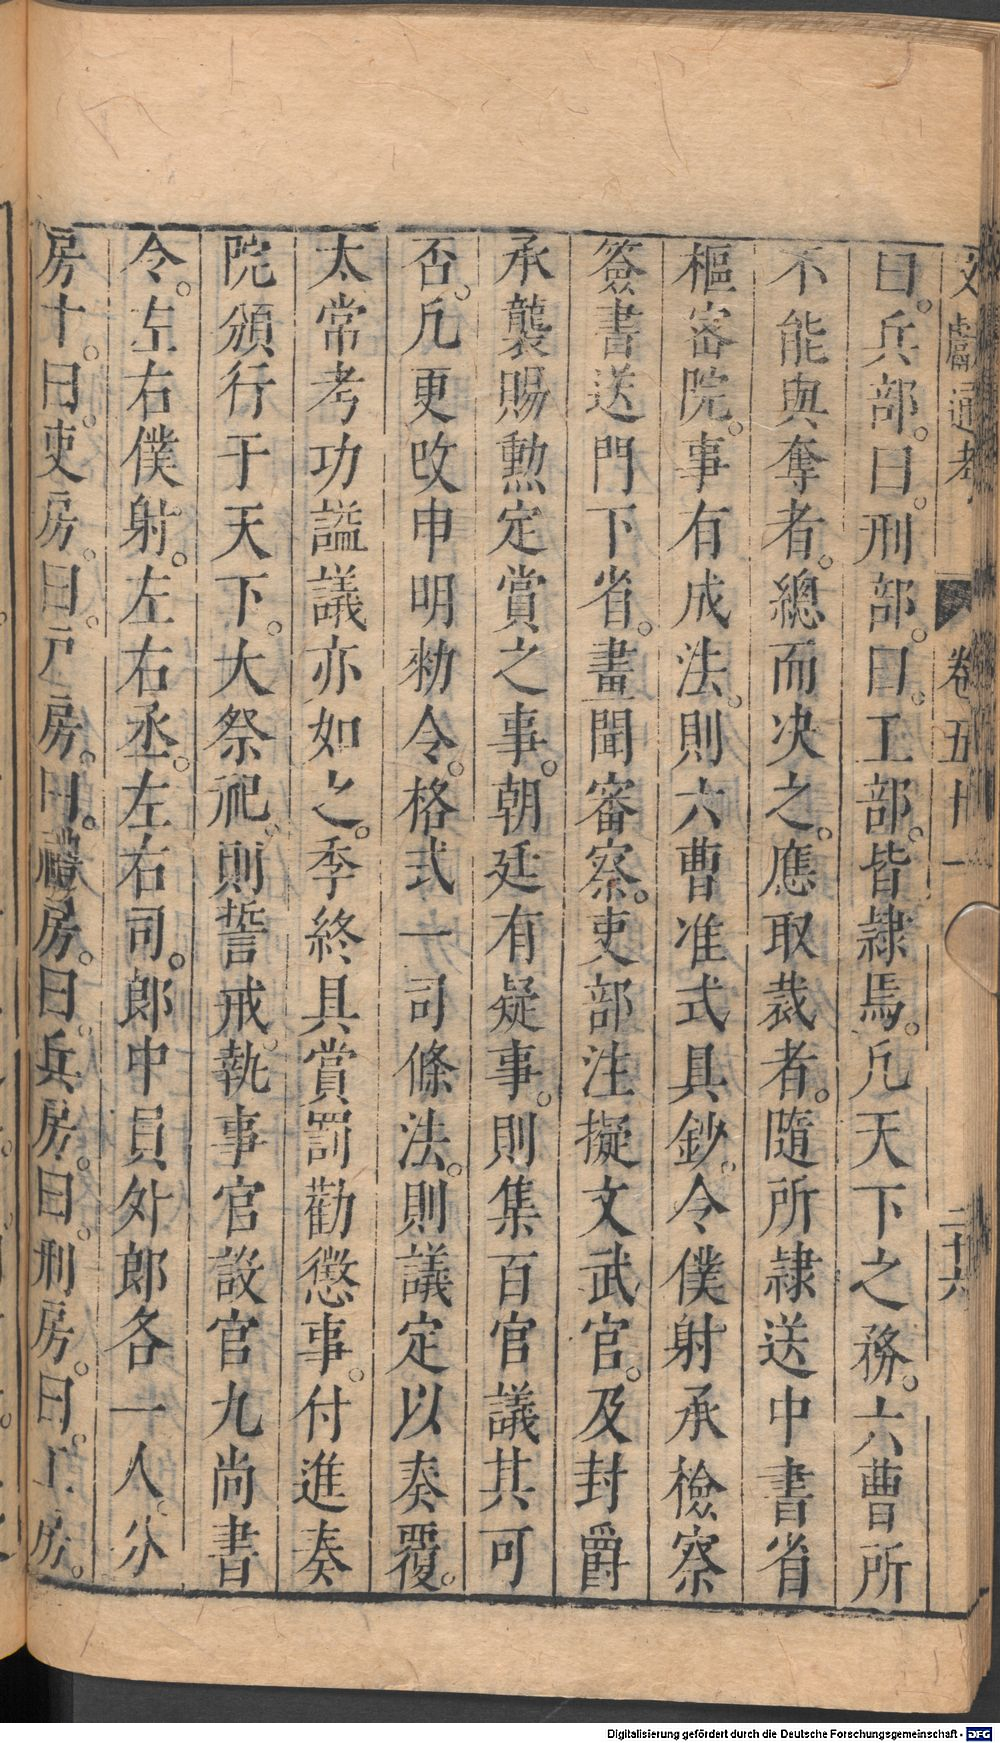 文獻通考 卷五十一 二十六
曰。兵部。曰。刑部。曰。工部。皆隷焉。凡天下之務。六曹所
不能與奪者。總而决之。應取裁者。隨所隷送中書省
樞密院。事有成法。則六曹准式具鈔。令僕射承檢察
簽書送門下省。畫聞審察。吏部注擬文武官。及封爵
承襲賜勲定賞之事。朝廷有疑事。則集百官議其可
否。凡更改申明勑令。格式一司條法。則議定以奏覆。
太常考功謚議亦如之。季終具賞罰勸懲事。付進奏
院頒行于天下。大祭祀。則誓戒。執事官設官九尚書
令。左右僕射。左右丞。左右司。郎中員外郎各一人。分
房十。曰。吏房。曰。戸房。曰。禮房。曰。兵房。曰。刑房。曰。工房。
Digitalisierung gefördert durch die Deutsche Forschungsgemeinschaft - DFG